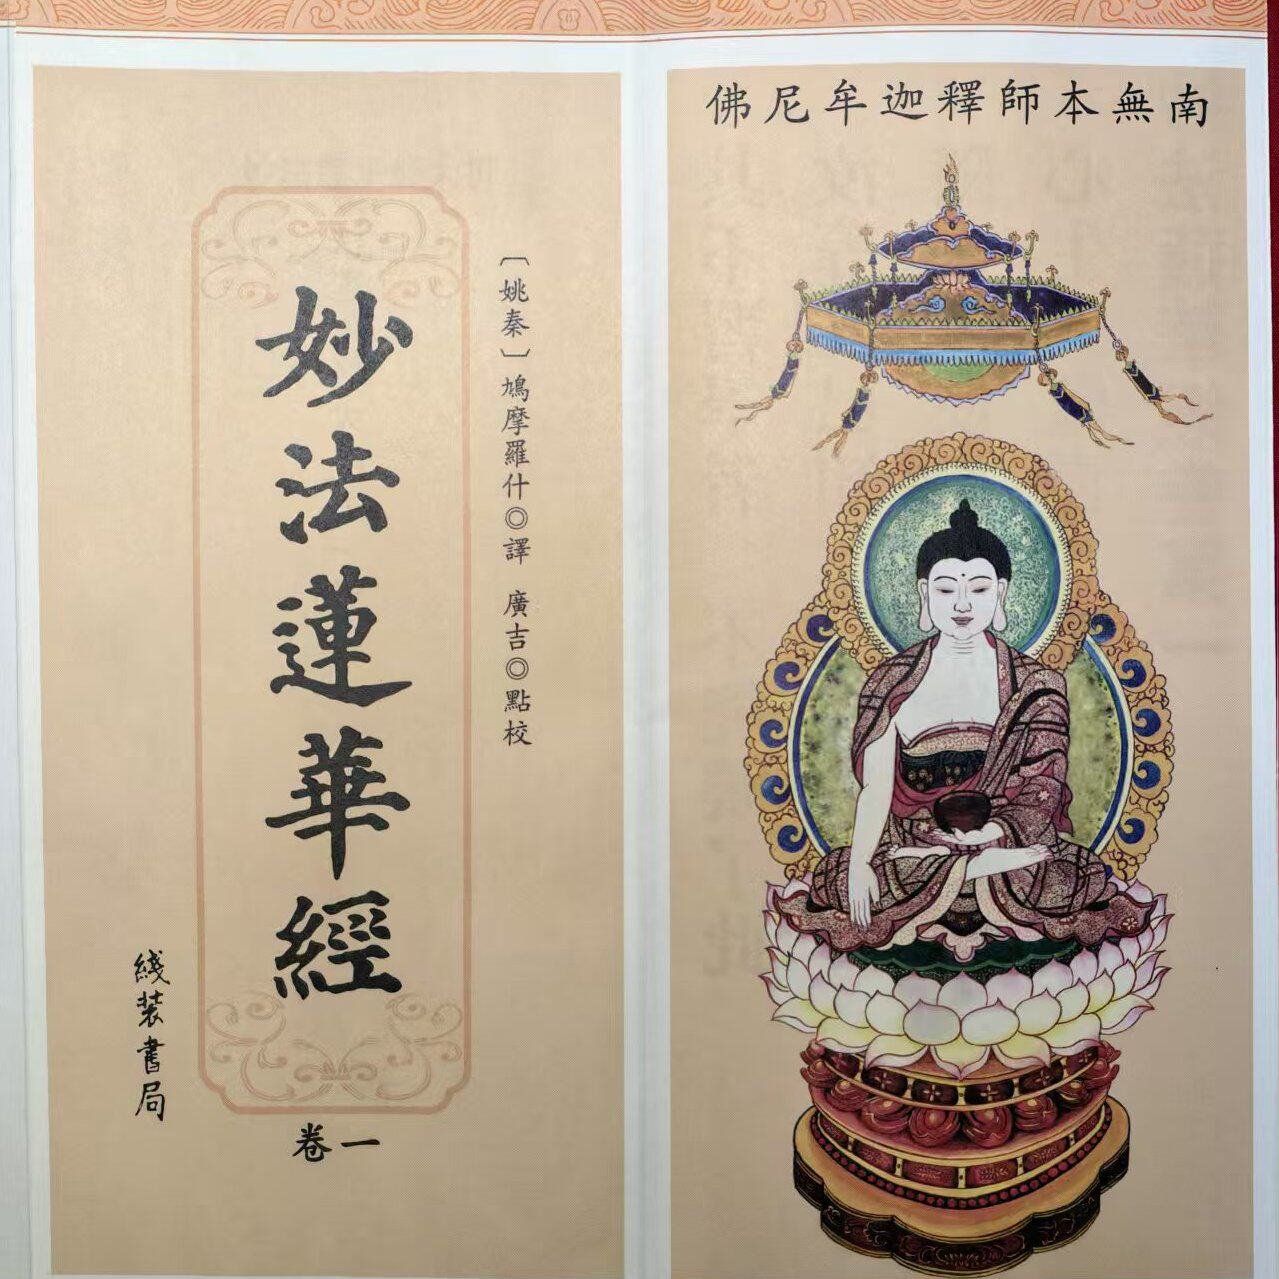 南無本師釋迦牟尼佛
〔姚秦〕鳩摩羅什◎譯 廣吉◎點校
妙法蓮華經
卷一
綫装書局